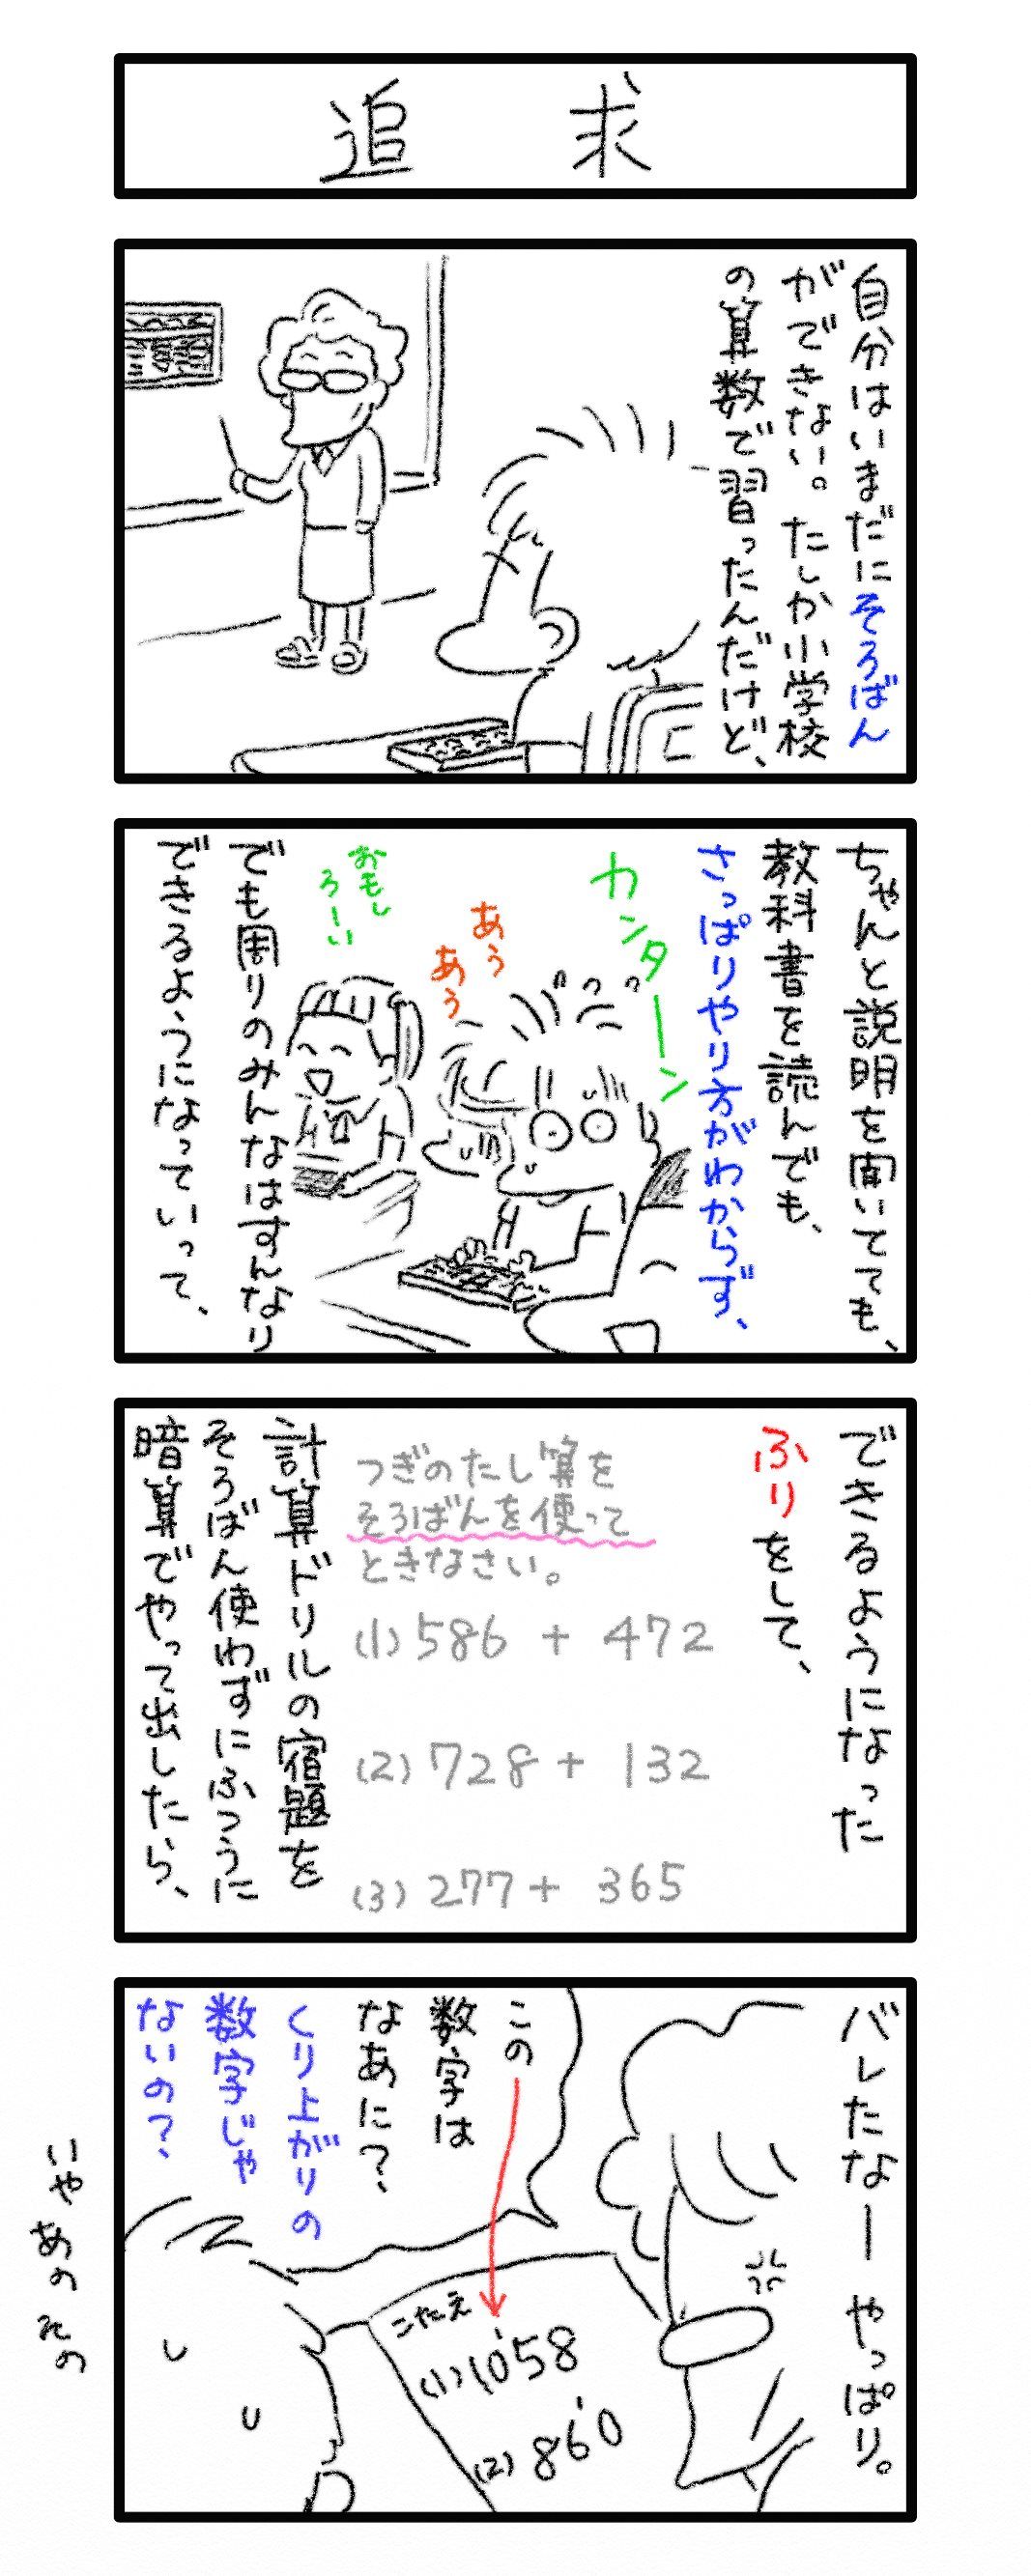 追求
自分はいまだにそろばん
ができない。たしか小学校
の算数で習ったんだけど、
ちゃんと説明を聞いてても、
教科書を読んでも、
さっぱりやり方がわからず、
カンターン
あぅ
あぅ
おもし
ろーい
でも周りのみんなはすんなり
できるようになっていって、
できるようになった
ふりをして、
つぎのたし算を
そろばんを使って
ときなさい。
(1) 586 + 472
(2) 728 + 132
(3) 277 + 365
計算ドリルの宿題を
そろばん使わずにふつうに
暗算でやって出したら、
バレたなー やっぱり。
この
数字は
なあに?
くり上がりの
数字じゃ
ないの?
こたえ
(1) 1058
(2) 860
いや あの その